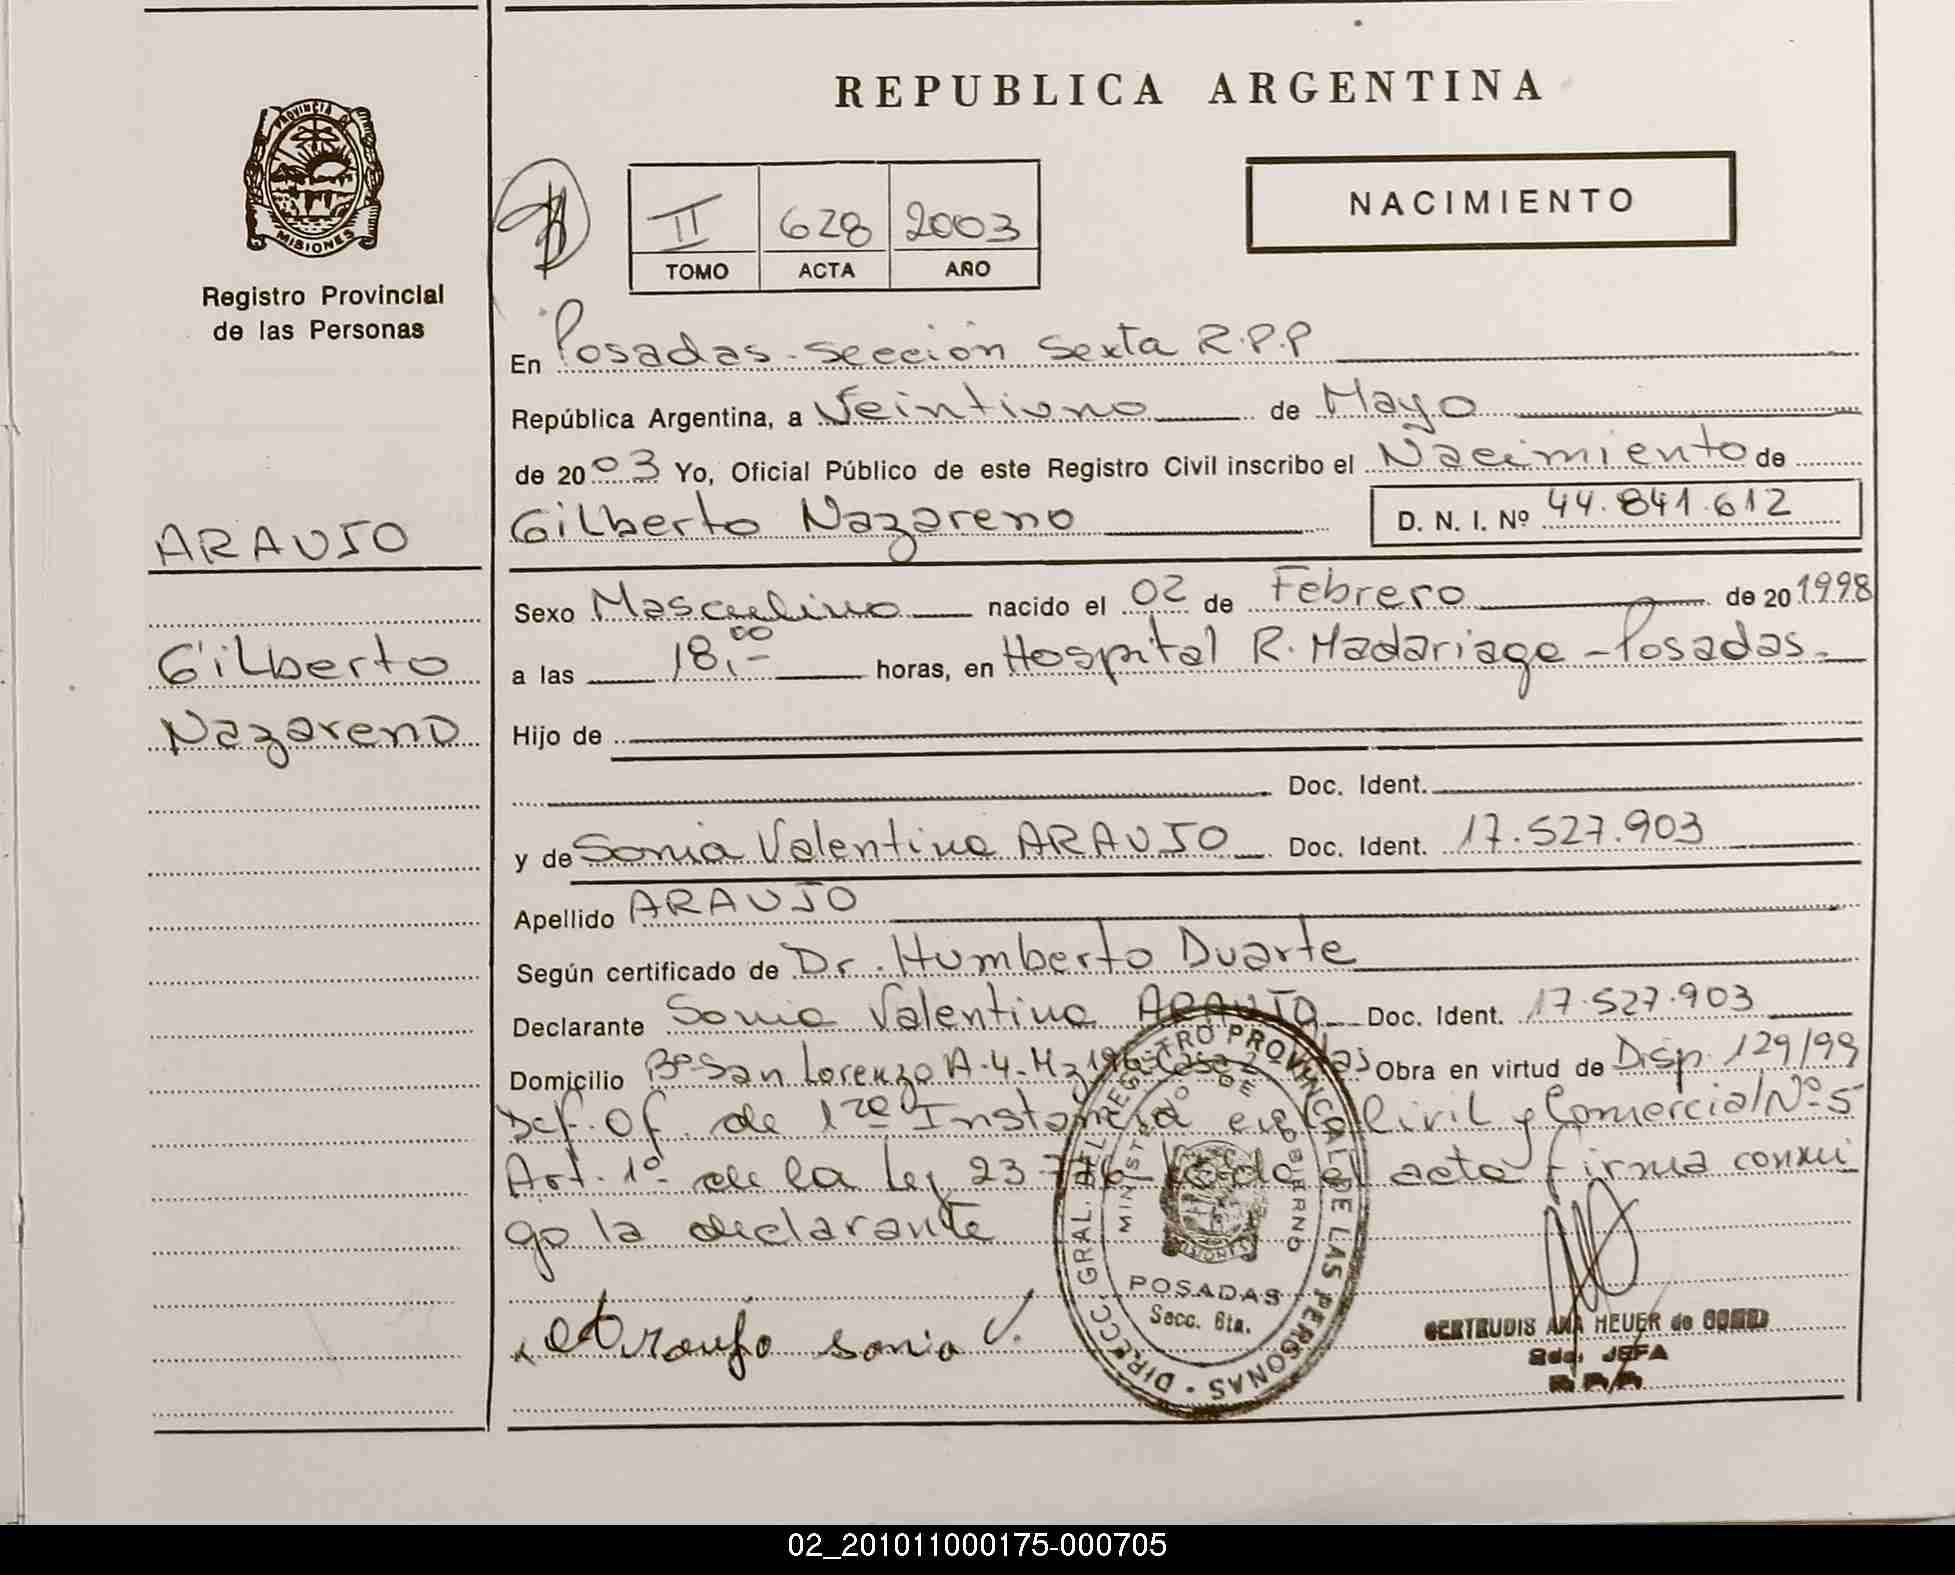 REPUBLICA ARGENTINA
PROVINCIA DE
MISIONES
Registro Provincial
de las Personas
II 628 2003
TOMO ACTA AÑO
NACIMIENTO
En Posadas - sección sexta R.P.P
República Argentina, a Veintiuno de Mayo
de 2003 Yo, Oficial Público de este Registro Civil inscribo el Nacimiento de
Gilberto Nazareno D. N. I. Nº 44.841.612
ARAUJO
Gilberto
Nazareno
Sexo Masculino nacido el 02 de Febrero de 20 1998
a las 18,00- horas, en Hospital R. Madariaga - Posadas-
Hijo de
Doc. Ident.
y de Sonia Valentina ARAUJO Doc. Ident. 17.527.903
Apellido ARAUJO
Según certificado de Dr. Humberto Duarte
Declarante Sonia Valentina ARAUJO Doc. Ident. 17.527.903
Domicilio Bº San Lorenzo A-4-Mz 196-Casa 2 Obra en virtud de Disp. 129/99
Def. Of. de 1ra Instancia en lo Civil y Comercial Nº 5
Art. 1º de la Ley 23 776 el acta firma conmi
go la declarante
Araujo sonia V.
DIRECC. GRAL. DEL REGISTRO PROVINCIAL DE LAS PERSONAS
MINISTERIO DE GOBIERNO
MISIONES
POSADAS
Secc. 6ta.
GERTRUDIS ANA HEUER de
2da. JEFA
R.P.P.
02_201011000175-000705